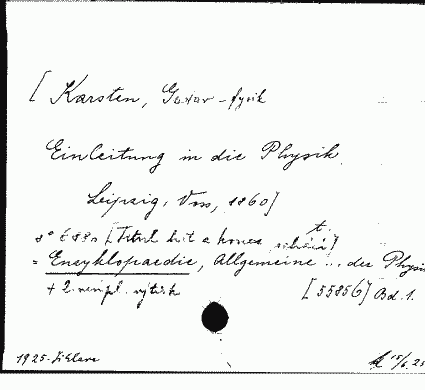 [ Karsten, Gustav - fysik
Einleitung in die Physik.
Leipzig, Voss, 1860]
8° 688 [Titul list a konec schází]
t.
= Encyklopaedie, Allgemeine ... der Physik
+ 2. neúpl. výtisk
[55856] Bd. 1.
1925.
15/6.25